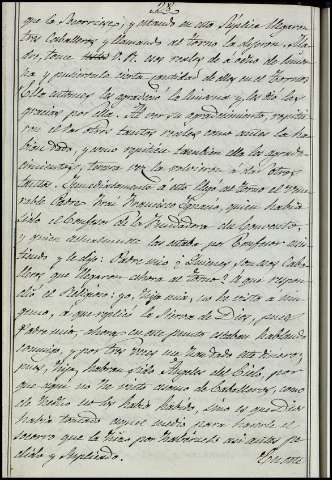 218
que la socorriesse; y estando en esta Suplica llegaron
tres Caballeros y llamando al torno la dixeron: Ma-
dre, tome V. R. essos reales de à ocho de limos-
na y pusieronle cierta cantidad de ellos en el torno.
Ella entonces les agradeciò la limosna y les diò las
gracias por ella. Al ver su agradecimiento, repitie-
ron el dar otros tantos reales como antes la ha-
bian dado, y como repitiesse tambien ella los agrade-
cimientos, tercera vez la volvieron à dar otros
tantos. Immediatamente a esto llegò al torno el vene-
rable Padre Frai Francisco Ignacio, quien habia
sido el Confesor de la Fundadora del Convento,
y quien actualmente las estaba por Confesor asis-
tiendo y le dijo: Padre mio ¿Quienes son essos Caba-
lleros que llegaron ahora al torno? A que respon-
diò el Religioso: yo, Hija mia, no he visto a nin-
guno, à que replicò la Sierva de Dios, pues
Padre mio, ahora en este punto estaban hablando
conmigo, y por tres veces me han dado este dinero;
pues, Hija, habran sido Angeles del Cielo, por-
que aqui no he visto asomo de Caballeros, como
de hecho no los habia habido, sino es que Dios
habia tomado aquel medio para hacerle el
socorro que la hizo por haverselo asi antes pe-
dido y suplicado.